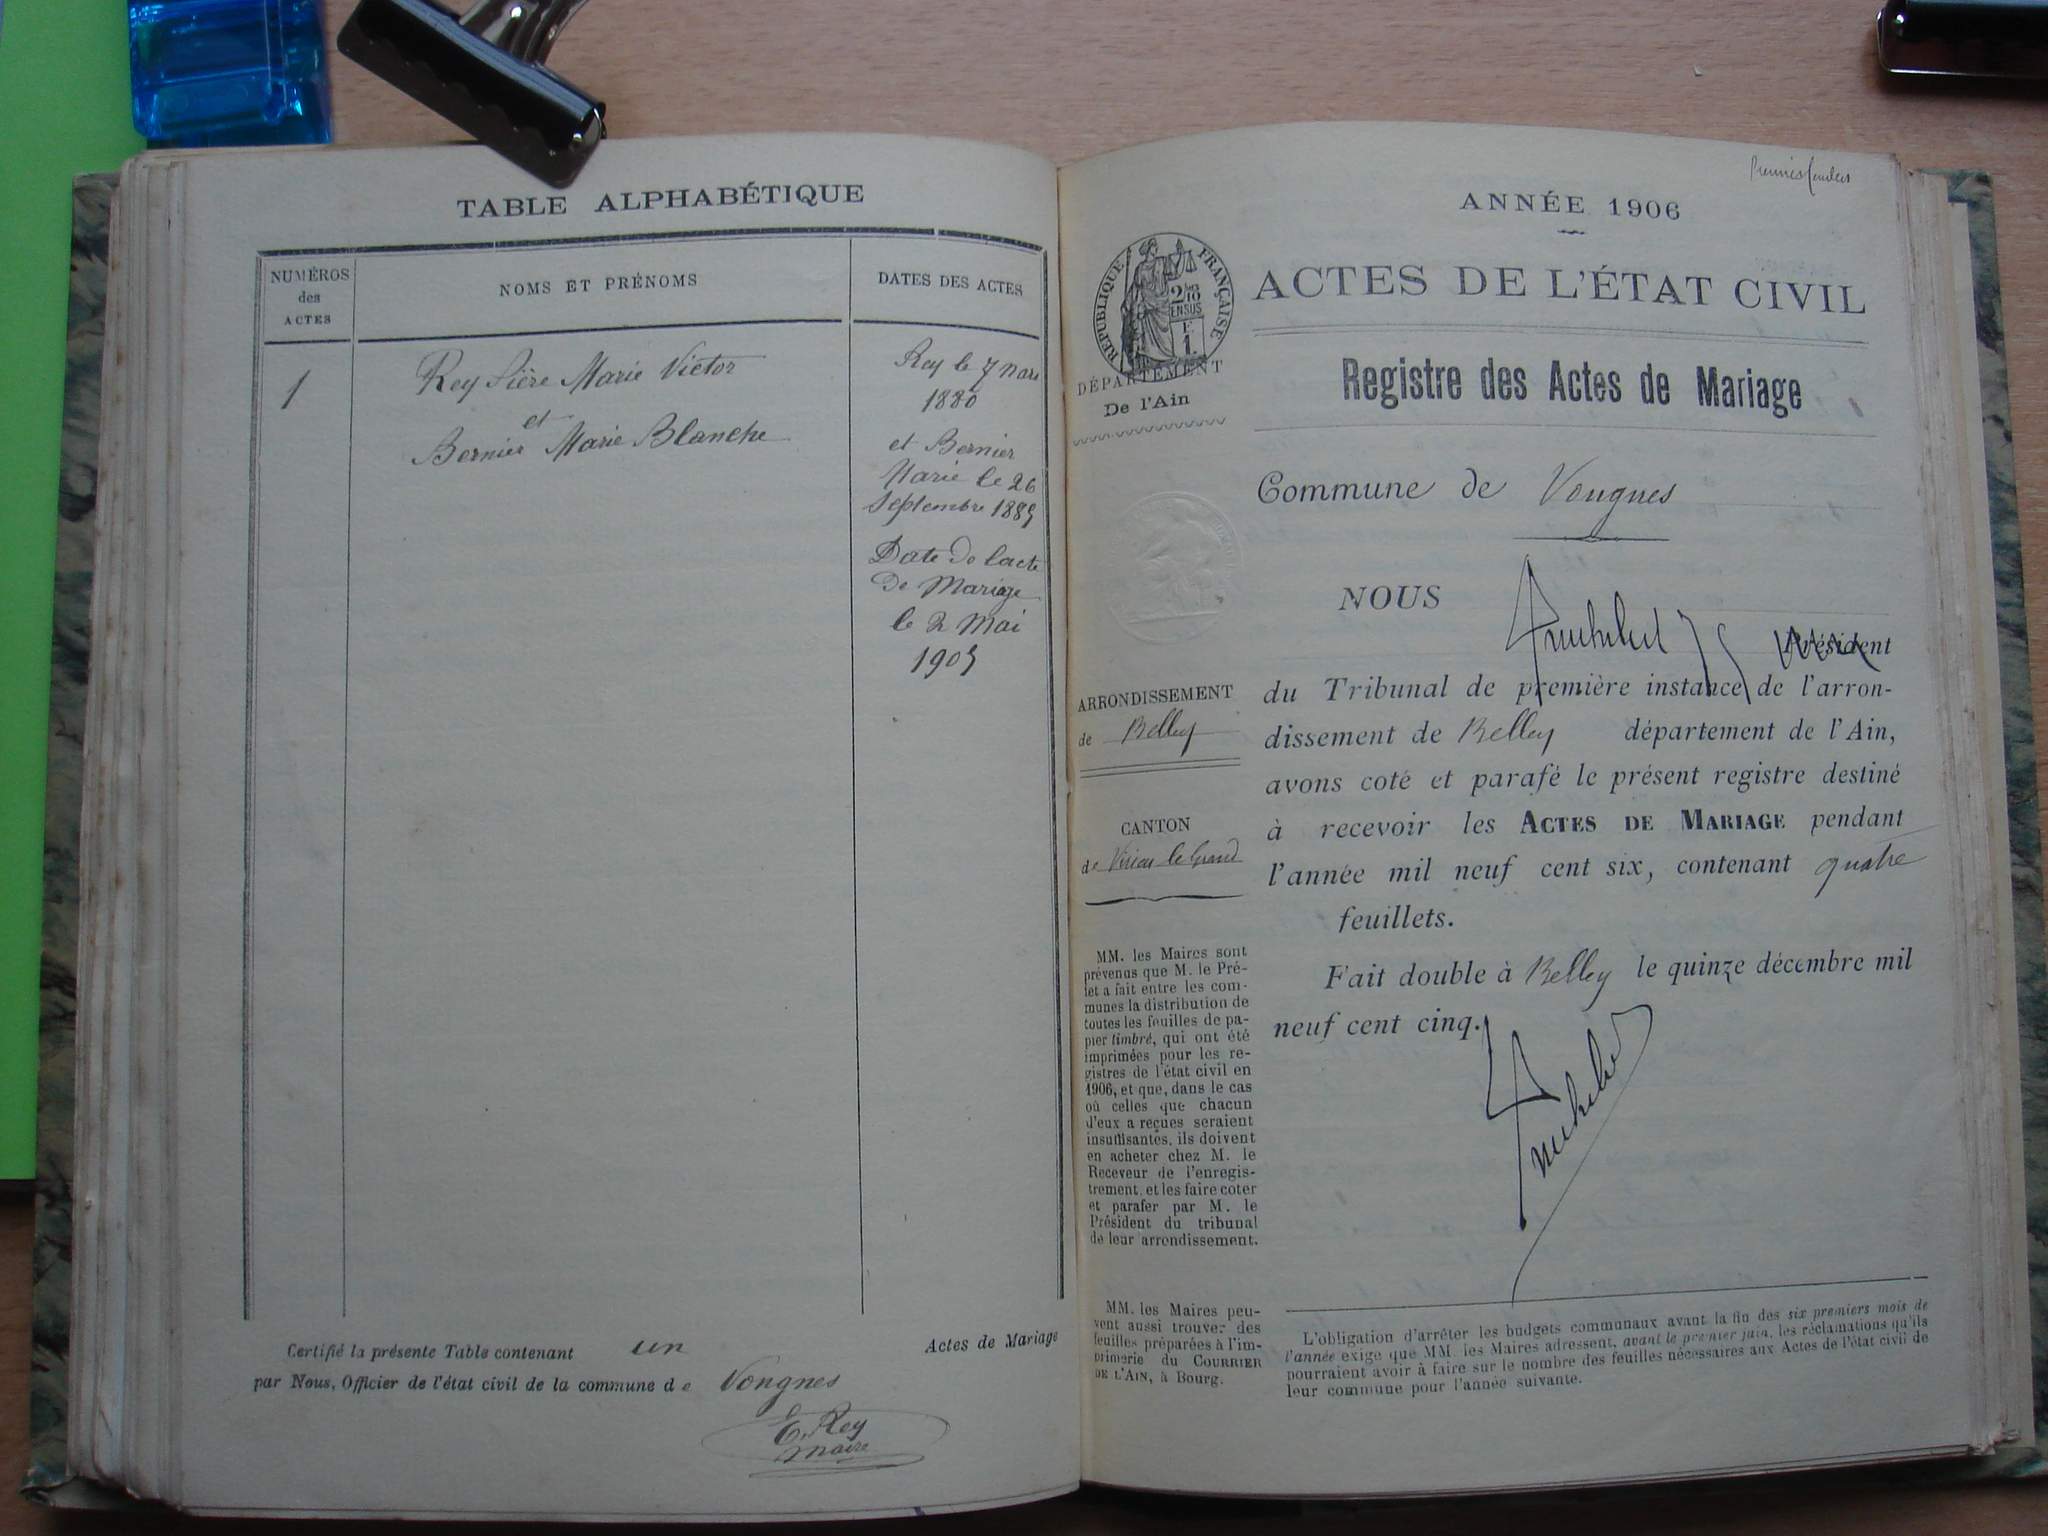 TABLE ALPHABÉTIQUE
NUMÉROS
des
ACTES
NOMS ET PRÉNOMS
DATES DES ACTES
1
Rey Marie Victor
et
Bernier Marie Blanche
Rey le 7 Mars
1880
et Bernier
Marie le 26
Septembre 1885
Date de lacte
de Mariage
le 2 Mai
1905
Certifié la présente Table contenant un Actes de Mariage
par Nous, Officier de l'état civil de la commune de Vongnes
E. Rey
maire
ANNÉE 1906
RÉPUBLIQUE FRANÇAISE
2/10
EN SUS
F
1
ACTES DE L'ÉTAT CIVIL
DÉPARTEMENT
De l'Ain
Registre des Actes de Mariage
Commune de Vongnes
NOUS
Président
du Tribunal de première instance de l'arron-
dissement de Belley département de l'Ain,
avons coté et parafé le présent registre destiné
à recevoir les ACTES DE MARIAGE pendant
l'année mil neuf cent six, contenant quatre
feuillets.
Fait double à Belley le quinze décembre mil
neuf cent cinq.
ARRONDISSEMENT
de Belley
CANTON
de Virieu le Grand
MM. les Maires sont
prévenus que M. le Pré-
fet a fait entre les com-
munes la distribution de
toutes les feuilles de pa-
pier timbré, qui ont été
imprimées pour les re-
gistres de l'état civil en
1906, et que, dans le cas
où celles que chacun
d'eux a reçues seraient
insuffisantes, ils doivent
en acheter chez M. le
Receveur de l'enregis-
trement, et les faire coter
et parafer par M. le
Président du tribunal
de leur arrondissement.
MM. les Maires peu-
vent aussi trouver des
feuilles préparées à l'im-
primerie du COURRIER
DE L'AIN, à Bourg.
L'obligation d'arrêter les budgets communaux avant la fin des six premiers mois de
l'année exige que MM. les Maires adressent, avant le premier juin, les réclamations qu'ils
pourraient avoir à faire sur le nombre des feuilles nécessaires aux Actes de l'état civil de
leur commune pour l'année suivante.